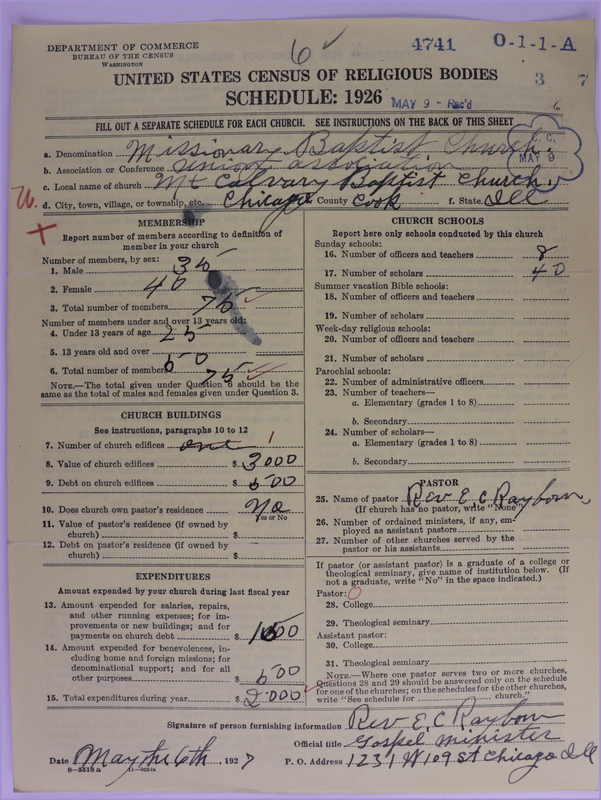 DEPARTMENT OF COMMERCE
BUREAU OF THE CENSUS
WASHINGTON
6 ✓
4741
O-1-1-A
UNITED STATES CENSUS OF RELIGIOUS BODIES
3 7
SCHEDULE: 1926
MAY 9 - Rec'd
6
FILL OUT A SEPARATE SCHEDULE FOR EACH CHURCH. SEE INSTRUCTIONS ON THE BACK OF THIS SHEET
C. C.
MAY 9
a. Denomination Missionary Baptist Church
b. Association or Conference Union association
c. Local name of church Mt Calvary Baptist Church
d. City, town, village, or township, etc. Chicago County Cook f. State Ill
MEMBERSHIP
Report number of members according to definition of
member in your church
Number of members, by sex:
1. Male 35
2. Female 40
3. Total number of members 75 ✓
Number of members under and over 13 years old:
4. Under 13 years of age 25
5. 13 years old and over 50
6. Total number of members 75 ✓
NOTE.—The total given under Question 6 should be the
same as the total of males and females given under Question 3.
CHURCH BUILDINGS
See instructions, paragraphs 10 to 12
7. Number of church edifices one 1
8. Value of church edifices $ 3000
9. Debt on church edifices $ 500
10. Does church own pastor's residence No
Yes or No
11. Value of pastor's residence (if owned by
church) $
12. Debt on pastor's residence (if owned by
church) $
EXPENDITURES
Amount expended by your church during last fiscal year
13. Amount expended for salaries, repairs,
and other running expenses; for im-
provements or new buildings; and for
payments on church debt $ 1500
14. Amount expended for benevolences, in-
cluding home and foreign missions; for
denominational support; and for all
other purposes $ 500
15. Total expenditures during year $ 2000 ✓
CHURCH SCHOOLS
Report here only schools conducted by this church
Sunday schools:
16. Number of officers and teachers 8
17. Number of scholars 40
Summer vacation Bible schools:
18. Number of officers and teachers
19. Number of scholars
Week-day religious schools:
20. Number of officers and teachers
21. Number of scholars
Parochial schools:
22. Number of administrative officers
23. Number of teachers—
a. Elementary (grades 1 to 8)
b. Secondary
24. Number of scholars—
a. Elementary (grades 1 to 8)
b. Secondary
PASTOR
25. Name of pastor Rev E. C. Raybon
(If church has no pastor, write "None")
26. Number of ordained ministers, if any, em-
ployed as assistant pastors
27. Number of other churches served by the
pastor or his assistants
If pastor (or assistant pastor) is a graduate of a college or
theological seminary, give name of institution below. (If
not a graduate, write "No" in the space indicated.)
Pastor: 0
28. College
29. Theological seminary
Assistant pastor:
30. College
31. Theological seminary
NOTE.—Where one pastor serves two or more churches,
Questions 28 and 29 should be answered only on the schedule
for one of the churches; on the schedules for the other churches,
write "See schedule for church."
Signature of person furnishing information Rev E. C Raybon
Official title Gospel minister
Date May the 6th, 1927 P. O. Address 1231 W 109 St Chicago Ill
8—5518 a